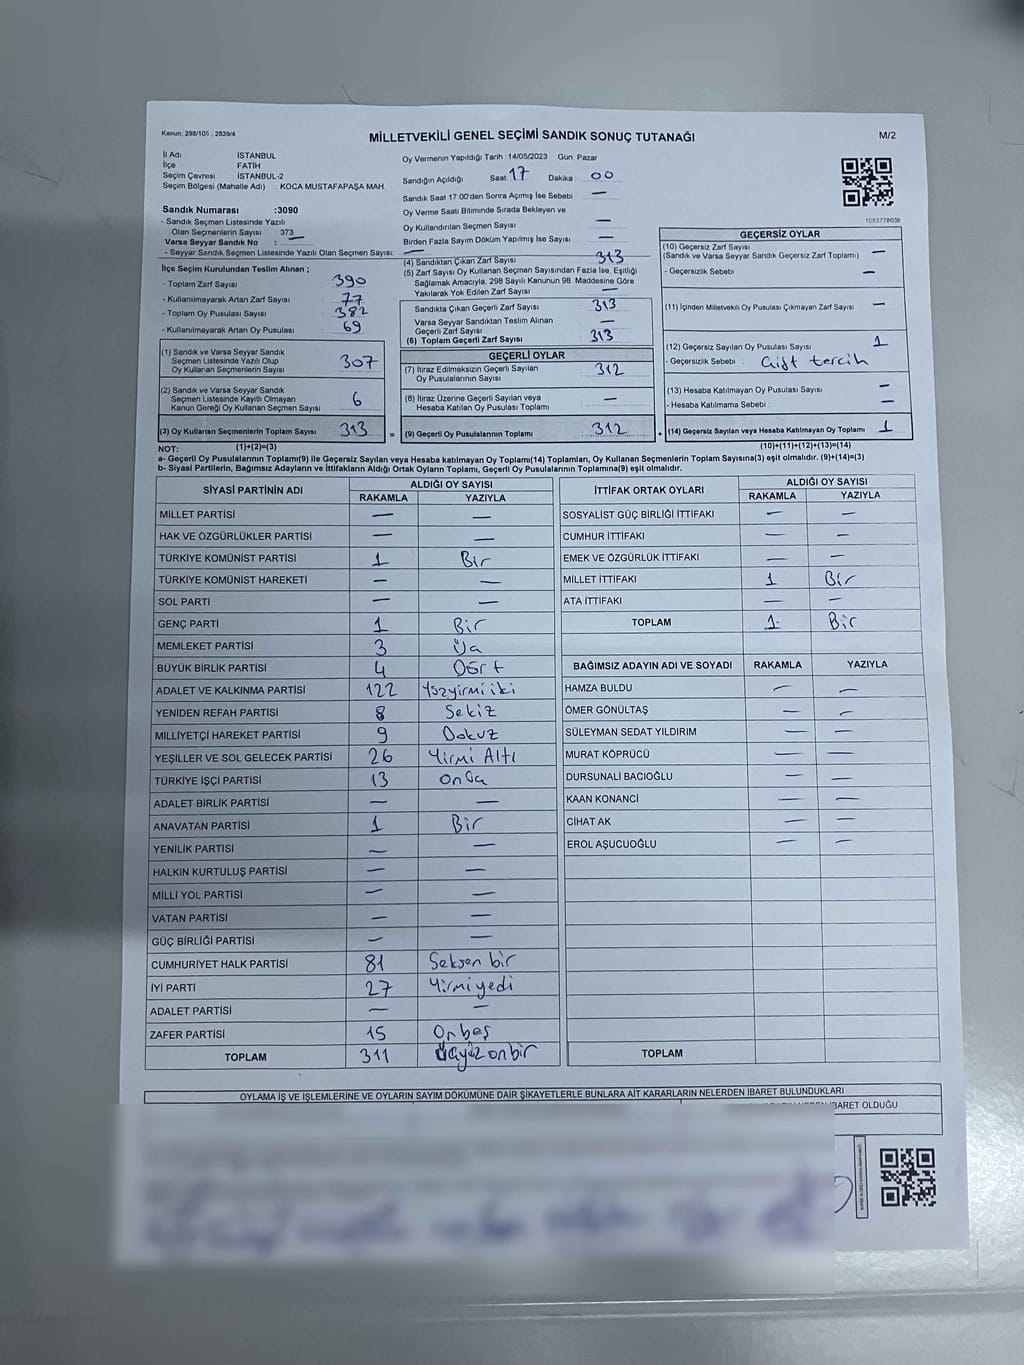 Kanun: 298/105 , 2839/4
MİLLETVEKİLİ GENEL SEÇİMİ SANDIK SONUÇ TUTANAĞI
M/2
İl Adı İSTANBUL
İlçe FATİH
Seçim Çevresi İSTANBUL-2
Seçim Bölgesi (Mahalle Adı) KOCA MUSTAFAPAŞA MAH.
Sandık Numarası :3090
- Sandık Seçmen Listesinde Yazılı
Olan Seçmenlerin Sayısı 373
Varsa Seyyar Sandık No : —
- Seyyar Sandık Seçmen Listesinde Yazılı Olan Seçmen Sayısı: —
Oy Vermenin Yapıldığı Tarih :14/05/2023 Gün Pazar
Sandığın Açıldığı Saat 17 Dakika 00
Sandık Saat 17 00'den Sonra Açımış İse Sebebi —
Oy Verme Saati Bitiminde Sırada Bekleyen ve
Oy Kullandırılan Seçmen Sayısı —
Birden Fazla Sayım Döküm Yapılmış İse Sayısı —
1083778036
İlçe Seçim Kurulundan Teslim Alınan ;
- Toplam Zarf Sayısı 390
- Kullanılmayarak Artan Zarf Sayısı 77
- Toplam Oy Pusulası Sayısı 382
- Kullanılmayarak Artan Oy Pusulası 69
(1) Sandık ve Varsa Seyyar Sandık
Seçmen Listesinde Yazılı Olup
Oy Kullanan Seçmenlerin Sayısı 307
(2) Sandık ve Varsa Seyyar Sandık
Seçmen Listesinde Kayıtlı Olmayan
Kanun Gereği Oy Kullanan Seçmen Sayısı 6
(3) Oy Kullanan Seçmenlerin Toplam Sayısı 313 =
(1)+(2)=(3)
(4) Sandıktan Çıkan Zarf Sayısı 313
(5) Zarf Sayısı Oy Kullanan Seçmen Sayısından Fazla İse, Eşitliği
Sağlamak Amacıyla, 298 Sayılı Kanunun 98. Maddesine Göre
Yakılarak Yok Edilen Zarf Sayısı —
Sandıkta Çıkan Geçerli Zarf Sayısı 313
Varsa Seyyar Sandıktan Teslim Alınan
Geçerli Zarf Sayısı —
(6) Toplam Geçerli Zarf Sayısı 313
GEÇERLİ OYLAR
(7) İtiraz Edilmeksizin Geçerli Sayılan
Oy Pusulalarının Sayısı 312
(8) İtiraz Üzerine Geçerli Sayılan veya
Hesaba Katılan Oy Pusulası Toplamı —
(9) Geçerli Oy Pusulalarının Toplamı 312 +
GEÇERSİZ OYLAR
(10) Geçersiz Zarf Sayısı —
(Sandık ve Varsa Seyyar Sandık Geçersiz Zarf Toplamı)
- Geçersizlik Sebebi —
(11) İçinden Milletvekili Oy Pusulası Çıkmayan Zarf Sayısı —
(12) Geçersiz Sayılan Oy Pusulası Sayısı 1
- Geçersizlik Sebebi Çift tercih
(13) Hesaba Katılmayan Oy Pusulası Sayısı —
- Hesaba Katılmama Sebebi —
(14) Geçersiz Sayılan veya Hesaba Katılmayan Oy Toplamı 1
(10)+(11)+(12)+(13)=(14)
NOT:
a- Geçerli Oy Pusulalarının Toplamı(9) ile Geçersiz Sayılan veya Hesaba katılmayan Oy Toplamı(14) Toplamları, Oy Kullanan Seçmenlerin Toplam Sayısına(3) eşit olmalıdır. (9)+(14)=(3)
b- Siyasi Partilerin, Bağımsız Adayların ve İttifakların Aldığı Ortak Oyların Toplamı, Geçerli Oy Pusulalarının Toplamına(9) eşit olmalıdır.
SİYASİ PARTİNİN ADI
ALDIĞI OY SAYISI
RAKAMLA YAZIYLA
MİLLET PARTİSİ — —
HAK VE ÖZGÜRLÜKLER PARTİSİ — —
TÜRKİYE KOMÜNİST PARTİSİ 1 Bir
TÜRKİYE KOMÜNİST HAREKETİ — —
SOL PARTİ — —
GENÇ PARTİ 1 Bir
MEMLEKET PARTİSİ 3 Üç
BÜYÜK BİRLİK PARTİSİ 4 Dört
ADALET VE KALKINMA PARTİSİ 122 Yüzyirmiiki
YENİDEN REFAH PARTİSİ 8 Sekiz
MİLLİYETÇİ HAREKET PARTİSİ 9 Dokuz
YEŞİLLER VE SOL GELECEK PARTİSİ 26 Yirmi Altı
TÜRKİYE İŞÇİ PARTİSİ 13 Onüç
ADALET BİRLİK PARTİSİ — —
ANAVATAN PARTİSİ 1 Bir
YENİLİK PARTİSİ — —
HALKIN KURTULUŞ PARTİSİ — —
MİLLİ YOL PARTİSİ — —
VATAN PARTİSİ — —
GÜÇ BİRLİĞİ PARTİSİ — —
CUMHURİYET HALK PARTİSİ 81 Seksen bir
İYİ PARTİ 27 Yirmiyedi
ADALET PARTİSİ — —
ZAFER PARTİSİ 15 Onbeş
TOPLAM 311 Üçyüzonbir
İTTİFAK ORTAK OYLARI
ALDIĞI OY SAYISI
RAKAMLA YAZIYLA
SOSYALİST GÜÇ BİRLİĞİ İTTİFAKI — —
CUMHUR İTTİFAKI — —
EMEK VE ÖZGÜRLÜK İTTİFAKI — —
MİLLET İTTİFAKI 1 Bir
ATA İTTİFAKI — —
TOPLAM 1 Bir
BAĞIMSIZ ADAYIN ADI VE SOYADI RAKAMLA YAZIYLA
HAMZA BULDU — —
ÖMER GÖNÜLTAŞ — —
SÜLEYMAN SEDAT YILDIRIM — —
MURAT KÖPRÜCÜ — —
DURSUNALİ BACIOĞLU — —
KAAN KONANCİ — —
CİHAT AK — —
EROL AŞUCUOĞLU — —
TOPLAM
OYLAMA İŞ VE İŞLEMLERİNE VE OYLARIN SAYIM DÖKÜMÜNE DAİR ŞİKAYETLERLE BUNLARA AİT KARARLARIN NELERDEN İBARET BULUNDUKLARI
İBARET OLDUĞU